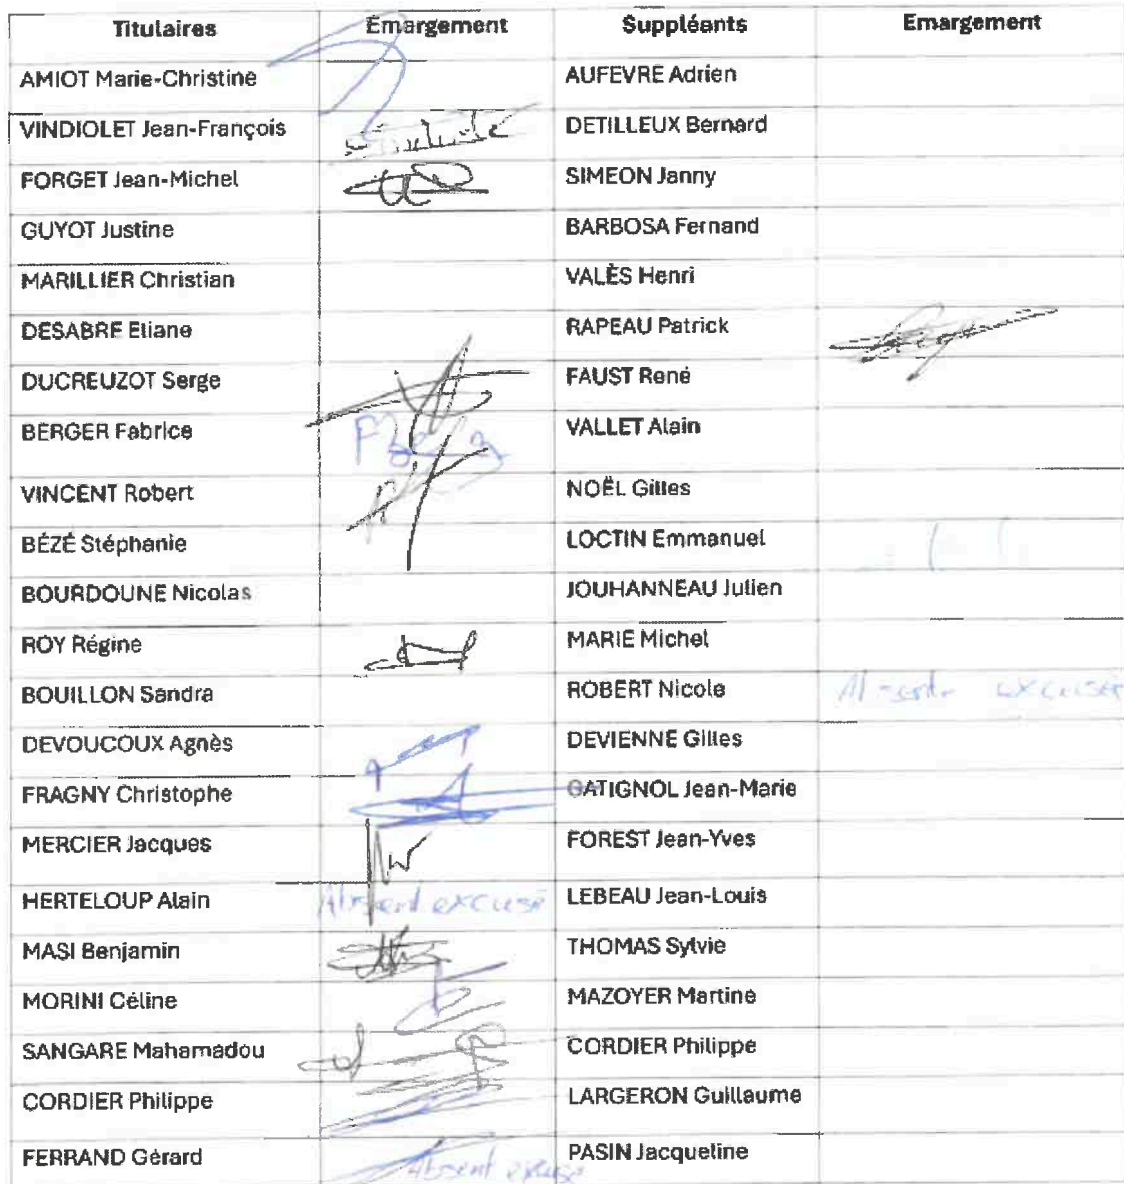 Titulaires Émargement Suppléants Emargement
AMIOT Marie-Christine AUFEVRE Adrien
VINDIOLET Jean-François DETILLEUX Bernard
FORGET Jean-Michel SIMEON Janny
GUYOT Justine BARBOSA Fernand
MARILLIER Christian VALÈS Henri
DESABRE Eliane RAPEAU Patrick
DUCREUZOT Serge FAUST René
BERGER Fabrice VALLET Alain
VINCENT Robert NOËL Gilles
BÉZÉ Stéphanie LOCTIN Emmanuel
BOURDOUNE Nicolas JOUHANNEAU Julien
ROY Régine MARIE Michel
BOUILLON Sandra ROBERT Nicole Absente excusée
DEVOUCOUX Agnès DEVIENNE Gilles
FRAGNY Christophe GATIGNOL Jean-Marie
MERCIER Jacques FOREST Jean-Yves
HERTELOUP Alain Absent excusé LEBEAU Jean-Louis
MASI Benjamin THOMAS Sylvie
MORINI Céline MAZOYER Martine
SANGARE Mahamadou CORDIER Philippe
CORDIER Philippe LARGERON Guillaume
FERRAND Gérard Absent excusé PASIN Jacqueline